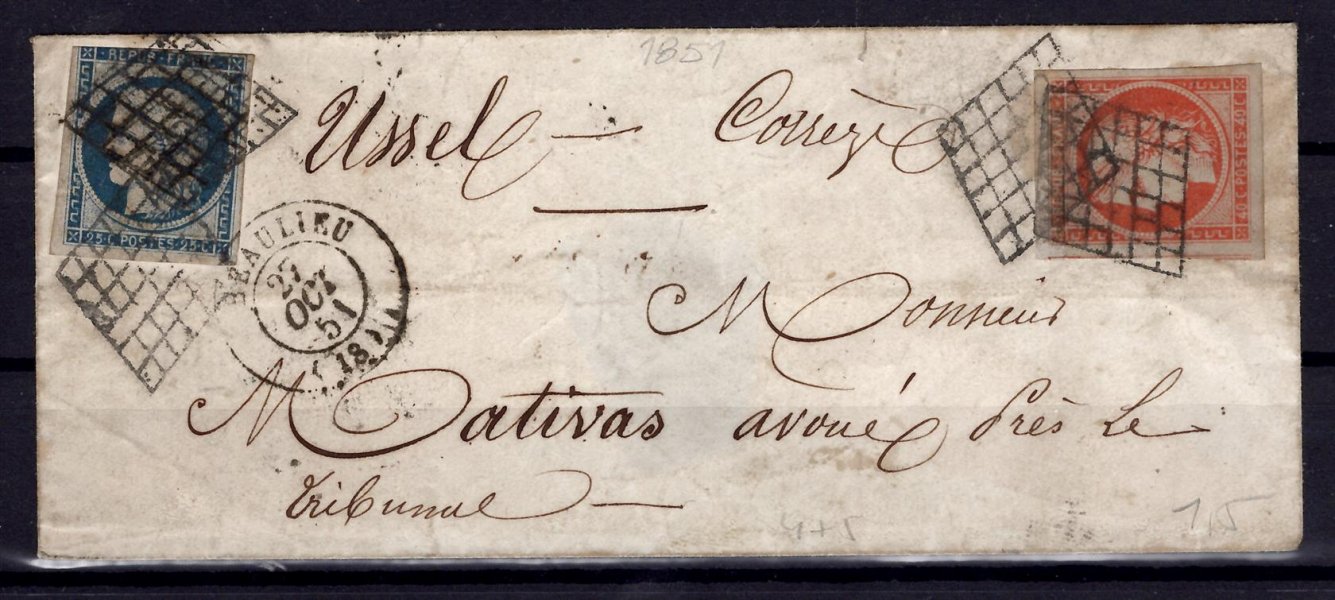 1851
REPUB. FRANC.
25 C. POSTES 25 C.
40 C. POSTES 40 C.
Ussel — Corrèze
BEAULIEU
27
OCT
51
(18)
Monsieur
Mativas avoué près le
tribunal —
4+5
1,5